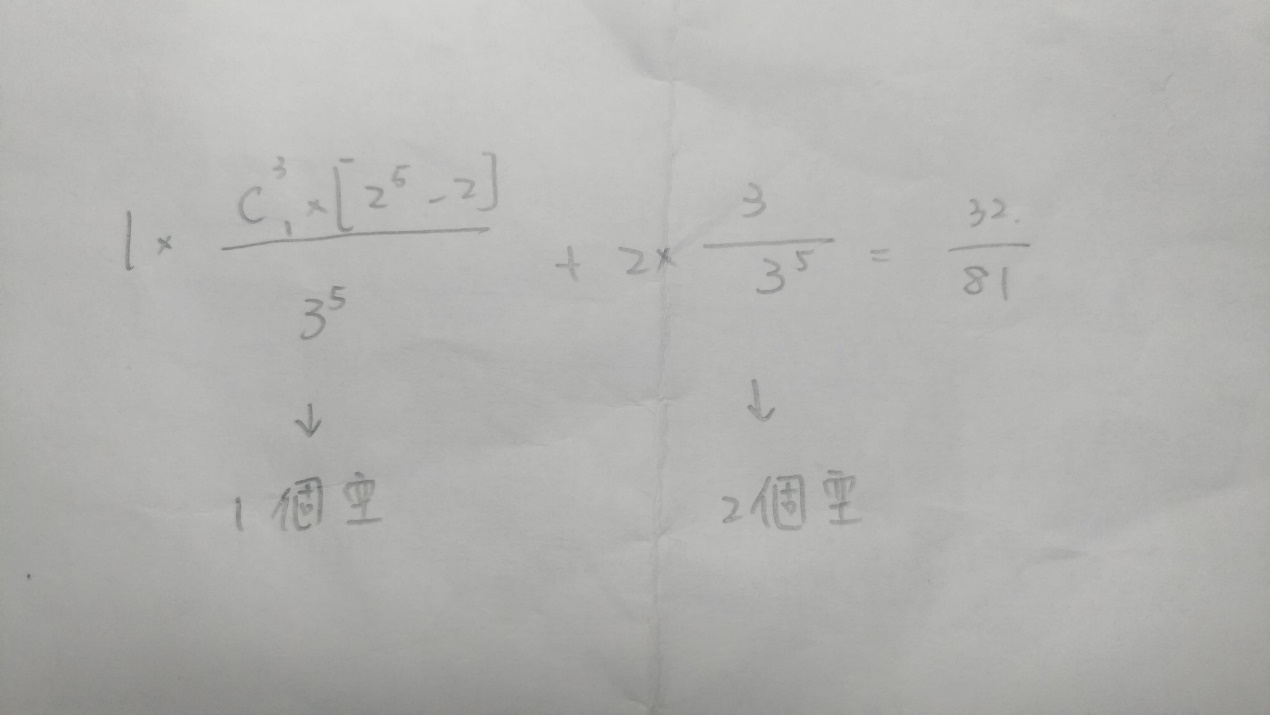 1 × C³₁ × [2⁵ - 2] / 3⁵ + 2 × 3 / 3⁵ = 32 / 81
↓ ↓
1個空 2個空